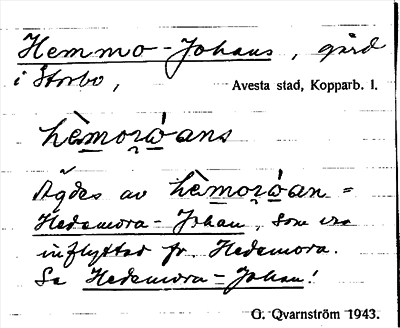 Hemmo-Johans, gård
i Storbo,
Avesta stad, Kopparb. l.
hèmoróans
Ägdes av hèmoróan =
Hedemora-Johan, som var
inflyttad fr. Hedemora.
Se Hedemora-Johan!
G. Qvarnström 1943.